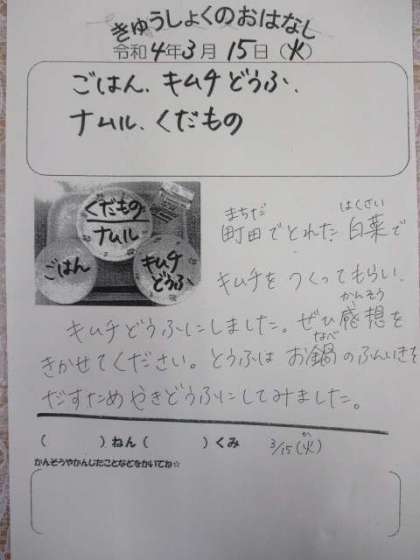 きゅうしょくのおはなし
令和4年3月15日(火)
ごはん、キムチどうふ、
ナムル、くだもの
くだもの
ナムル
ごはん
キムチ
どうふ
まちだ はくさい
町田でとれた白菜で
キムチをつくってもらい、
かんそう
キムチどうふにしました。ぜひ感想を
なべ
きかせてください。とうふはお鍋のふんいきを
だすためやきどうふにしてみました。
( )ねん( )くみ 3/15(火)
か
かんそうやかんじたことなどをかいてね☆